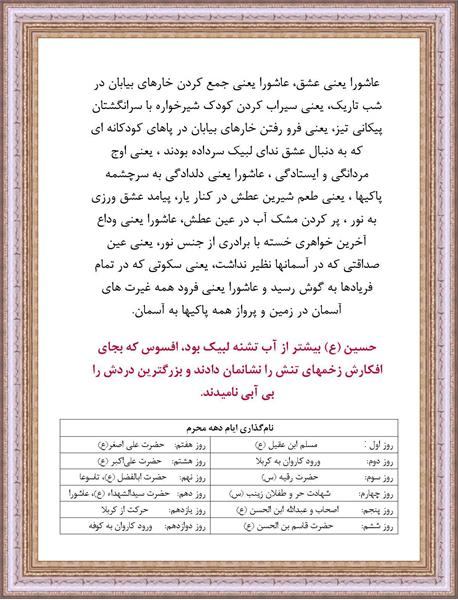 عاشورا یعنی عشق، عاشورا یعنی جمع کردن خارهای بیابان در
شب تاریک، یعنی سیراب کردن کودک شیرخواره با سرانگشتان
پیکانی تیز، یعنی فرو رفتن خارهای بیابان در پاهای کودکانه ای
که به دنبال عشق ندای لبیک سرداده بودند ، یعنی اوج
مردانگی و ایستادگی ، عاشورا یعنی دلدادگی به سرچشمه
پاکیها ، یعنی طعم شیرین عطش در کنار یار، پیامد عشق ورزی
به نور ، پر کردن مشک آب در عین عطش، عاشورا یعنی وداع
آخرین خواهری خسته با برادری از جنس نور، یعنی عین
صداقتی که در آسمانها نظیر نداشت، یعنی سکوتی که در تمام
فریادها به گوش رسید و عاشورا یعنی فرود همه غیرت های
آسمان در زمین و پرواز همه پاکیها به آسمان.
حسین (ع) بیشتر از آب تشنه لبیک بود، افسوس که بجای
افکارش زخمهای تنش را نشانمان دادند و بزرگترین دردش را
بی آبی نامیدند.
نام‌گذاری ایام دهه محرم
روز اول : مسلم ابن عقیل (ع) روز هفتم: حضرت علی اصغر(ع)
روز دوم: ورود کاروان به کربلا روز هشتم: حضرت علی‌اکبر (ع)
روز سوم: حضرت رقیه (س) روز نهم: حضرت ابالفضل (ع)، تاسوعا
روز چهارم: شهادت حر و طفلان زینب (س) روز دهم: حضرت سیدالشهداء (ع)، عاشورا
روز پنجم: اصحاب و عبدالله ابن الحسن (ع) روز یازدهم: حرکت از کربلا
روز ششم: حضرت قاسم بن الحسن (ع) روز دوازدهم: ورود کاروان به کوفه